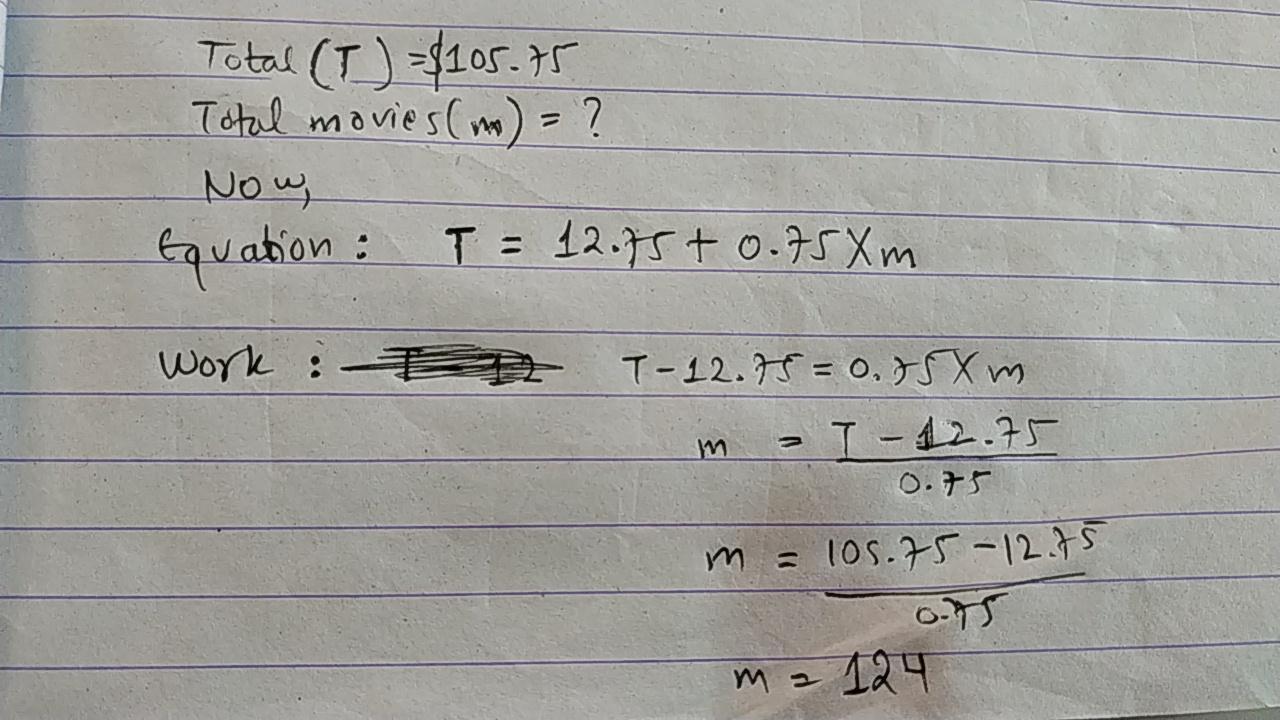 Total (T) = $105.75
Total movies (m) = ?
Now,
Equation : T = 12.75 + 0.75 X m
Work : T - 12.75 = 0.75 X m
m = T - 12.75
0.75
m = 105.75 - 12.75
0.75
m = 124